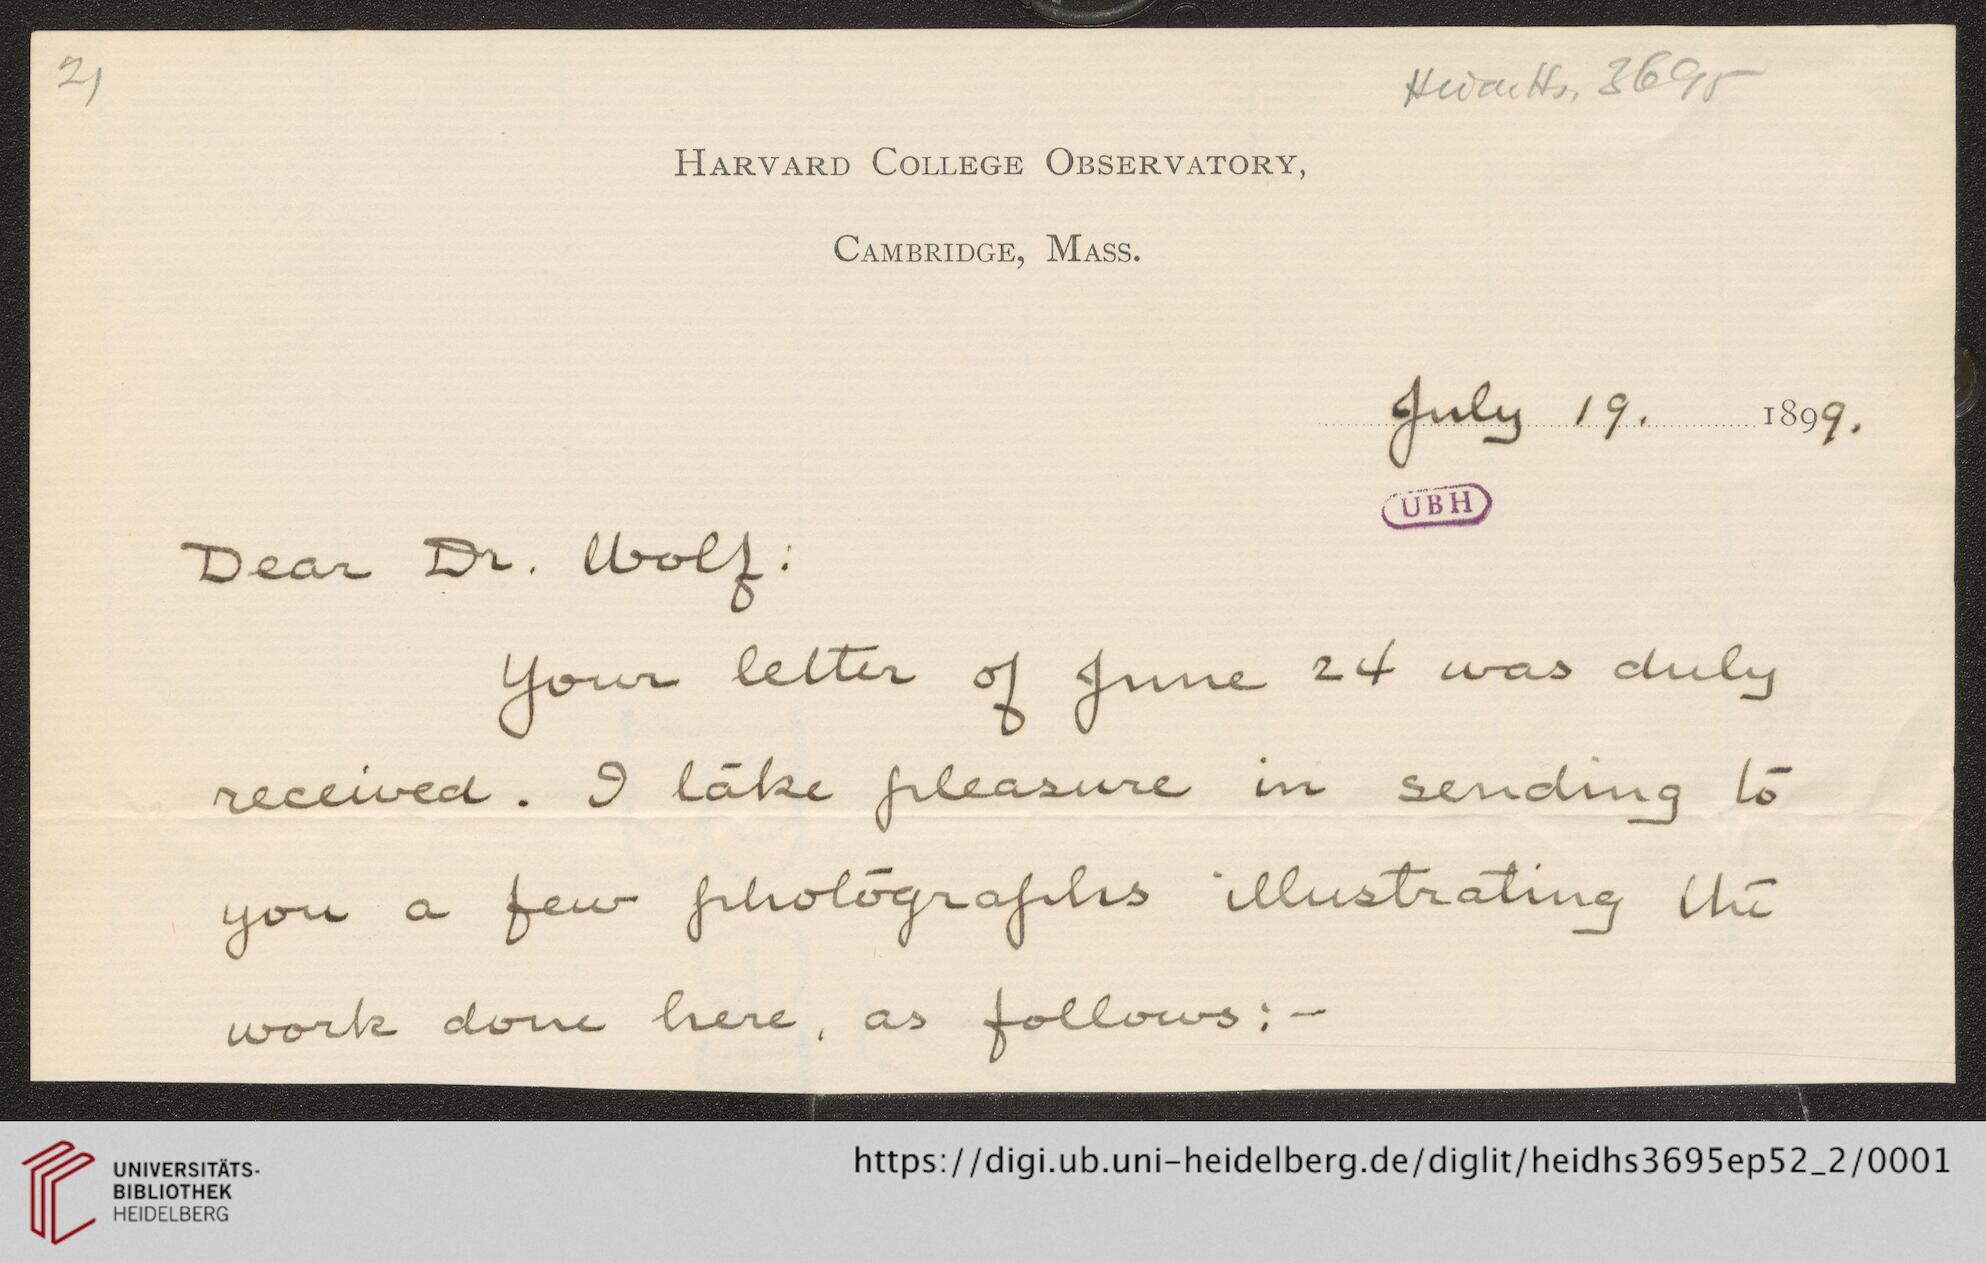 2)
Heid. Hs. 3695
HARVARD COLLEGE OBSERVATORY,
CAMBRIDGE, MASS.
July 19. 1899.
UBH
Dear Dr. Wolf:
Your letter of June 24 was duly
received. I take pleasure in sending to
you a few photographs illustrating the
work done here, as follows:-
UNIVERSITÄTS-
BIBLIOTHEK
HEIDELBERG
https://digi.ub.uni-heidelberg.de/diglit/heidhs3695ep52_2/0001